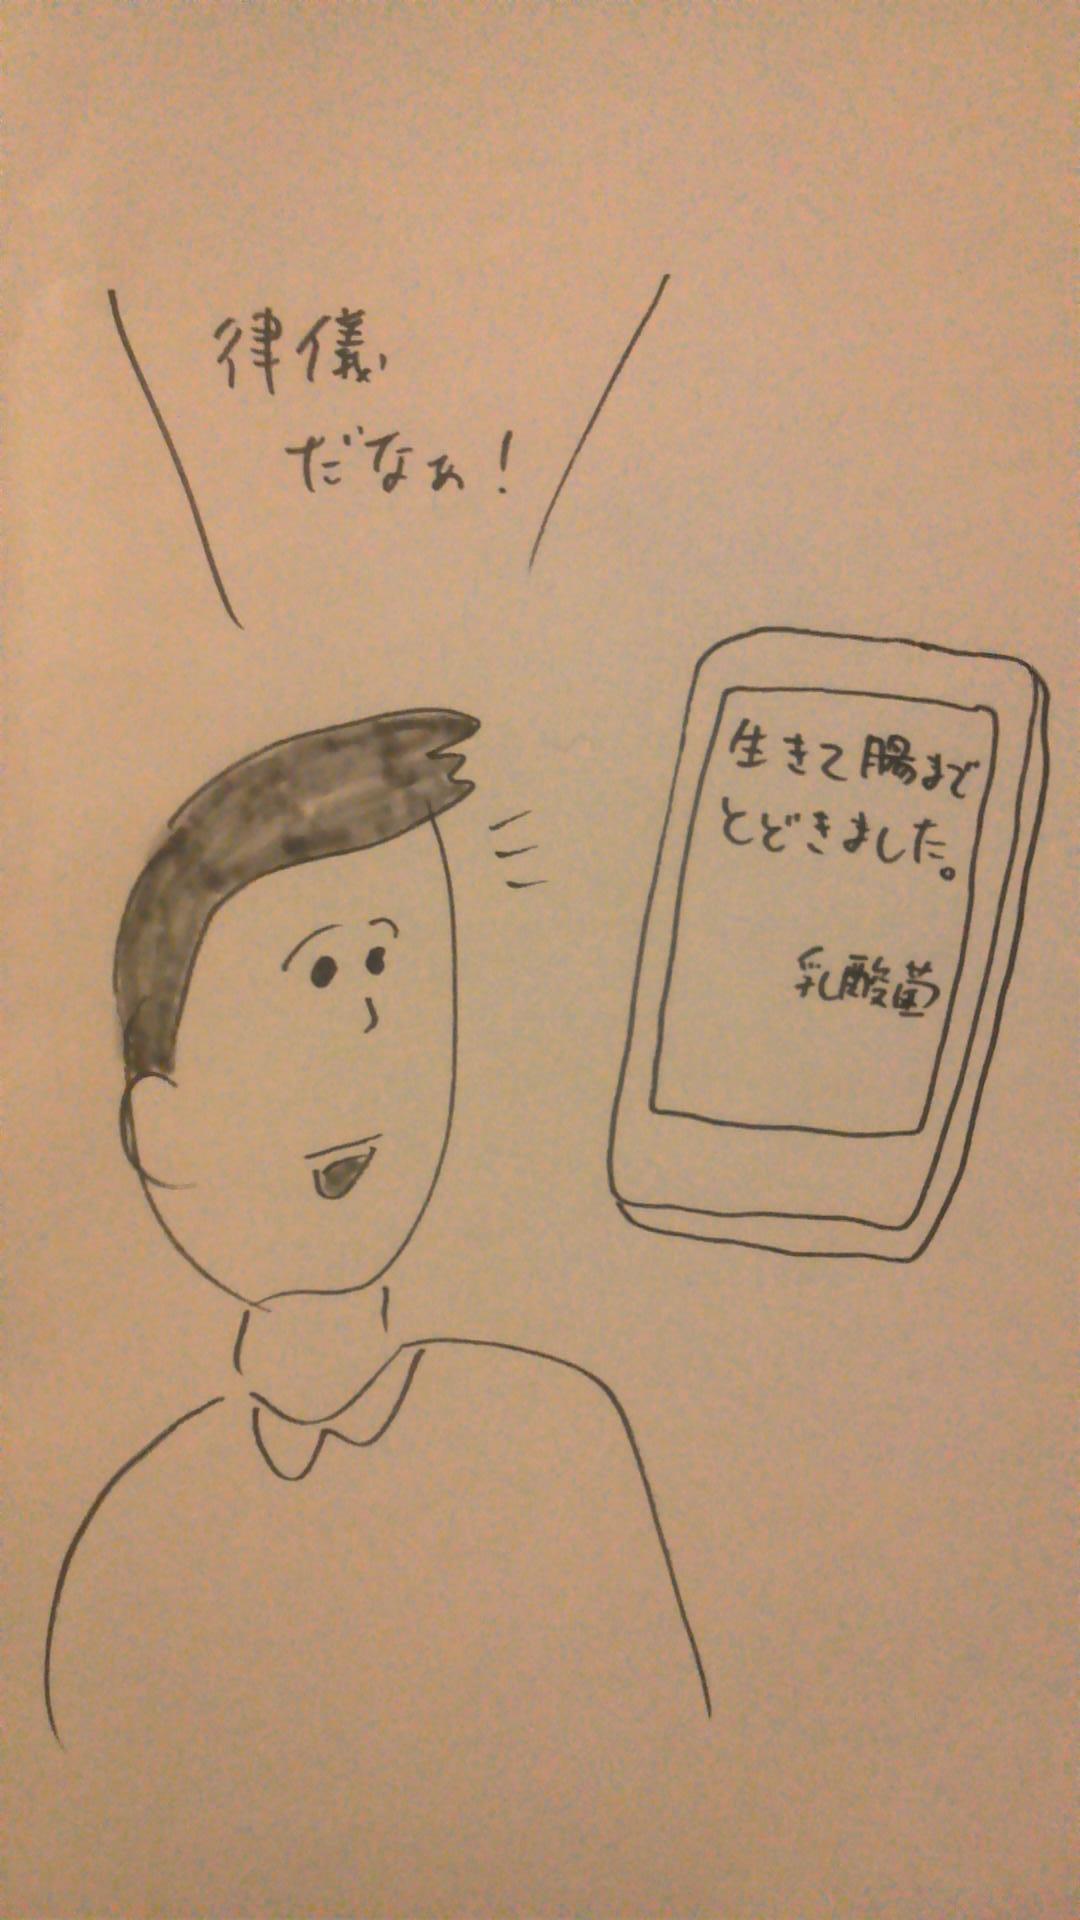 律儀
だなぁ!
生きて腸まで
とどきました。
乳酸菌